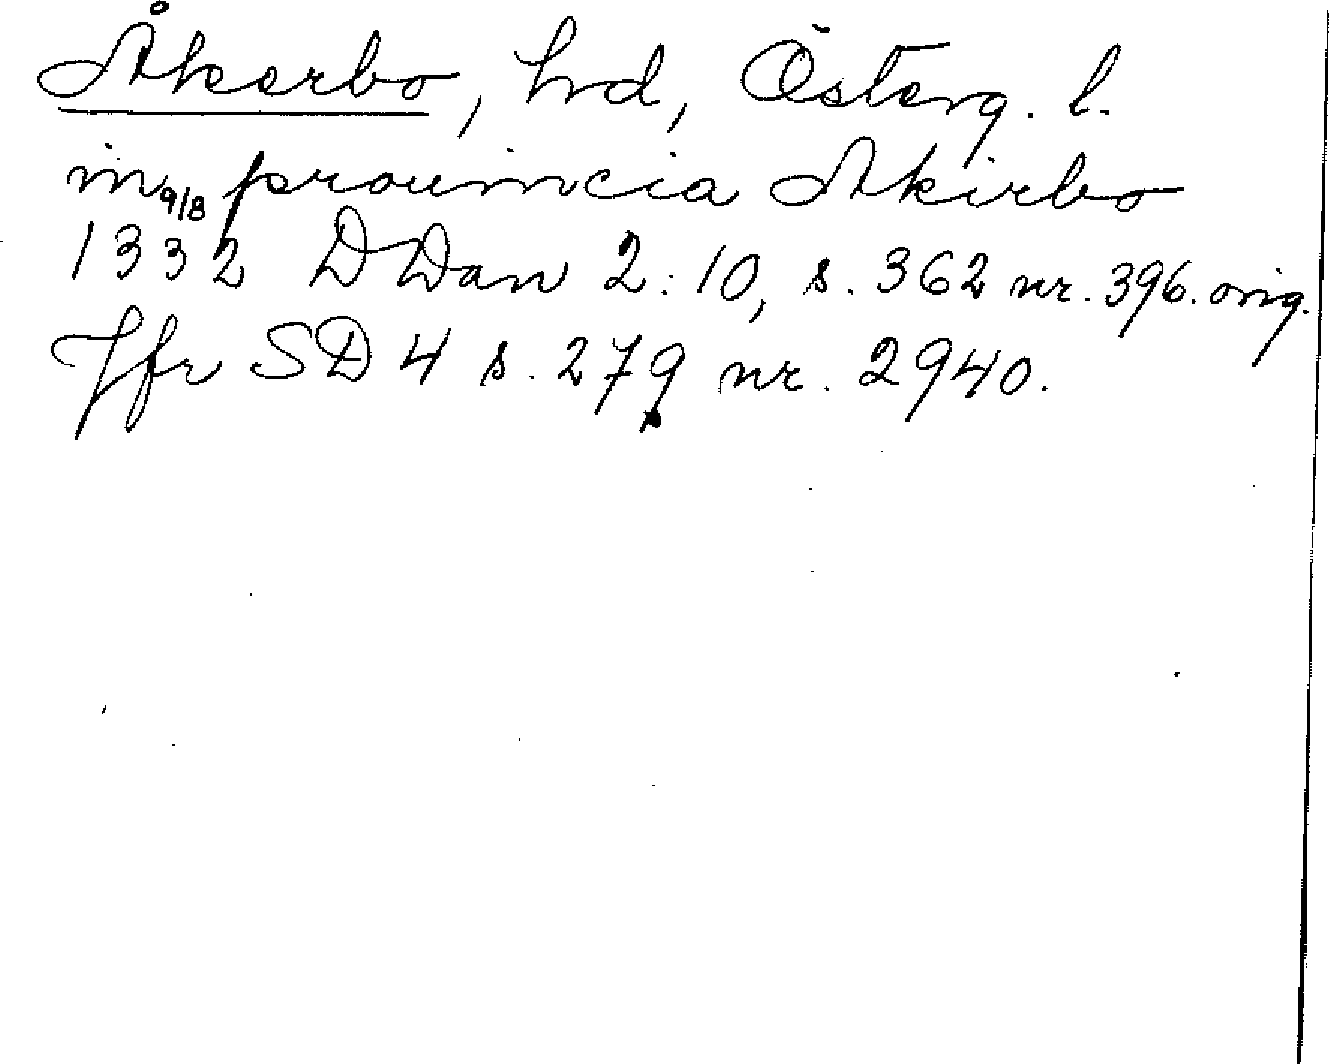 Åkerbo, hd, Österg. l.
in prouincia Akirbo
9/8
1332 DDan 2:10, s. 362 nr. 396. orig.
Jfr SD 4 s. 279 nr. 2940.